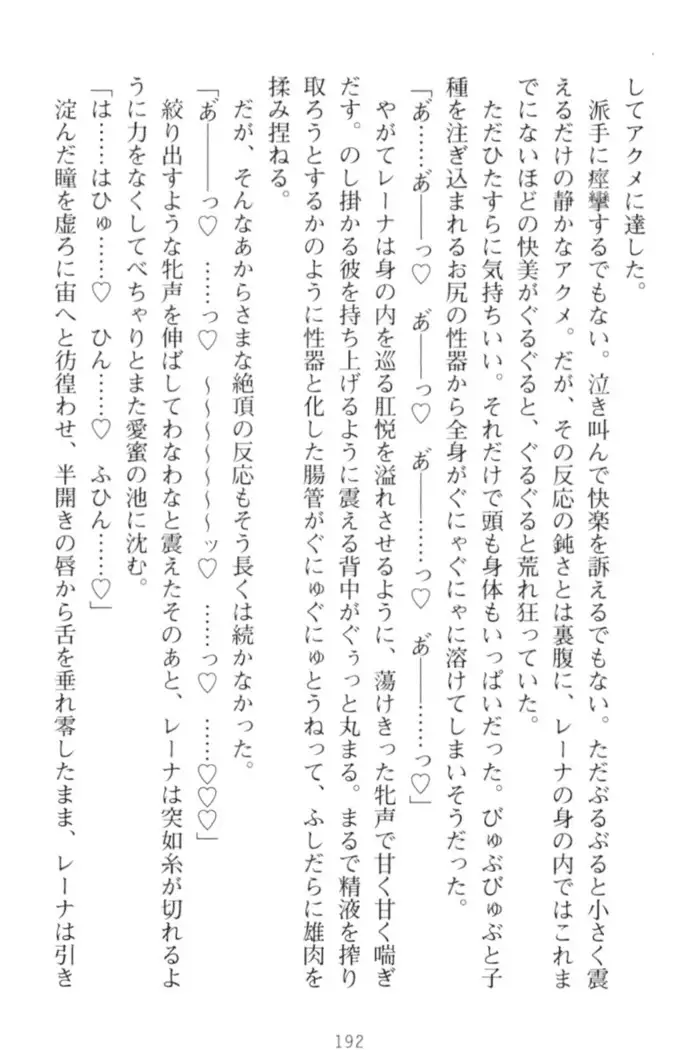 してアクメに達した。
派手に痙攣するでもない。泣き叫んで快楽を訴えるでもない。ただぶるぶると小さく震
えるだけの静かなアクメ。だが、その反応の鈍さとは裏腹に、レーナの身の内ではこれま
でにないほどの快美がぐるぐると、ぐるぐると荒れ狂っていた。
ただひたすらに気持ちいい。それだけで頭も身体もいっぱいだった。びゅぶびゅぶと子
種を注ぎ込まれるお尻の性器から全身がぐにゃぐにゃに溶けてしまいそうだった。
「あ゛……あ゛――っ♡　あ゛――っ♡　あ゛――……っ♡　あ゛――……っ♡」
やがてレーナは身の内を巡る肛悦を溢れさせるように、蕩けきった牝声で甘く甘く喘ぎ
だす。のし掛かる彼を持ち上げるように震える背中がぐぅっと丸まる。まるで精液を搾り
取ろうとするかのように性器と化した腸管がぐにゅぐにゅとうねって、ふしだらに雄肉を
揉み捏ねる。
だが、そんなあからさまな絶頂の反応もそう長くは続かなかった。
「あ゛――っ♡　……っ♡　～～～～～～ッ♡　……っ♡　……♡♡♡」
絞り出すような牝声を伸ばしてわなわなと震えたそのあと、レーナは突如糸が切れるよ
うに力をなくしてべちゃりとまた愛蜜の池に沈む。
「は……はひゅ……♡　ひん……♡　ふひん……♡」
淀んだ瞳を虚ろに宙へと彷徨わせ、半開きの唇から舌を垂れ零したまま、レーナは引き
192